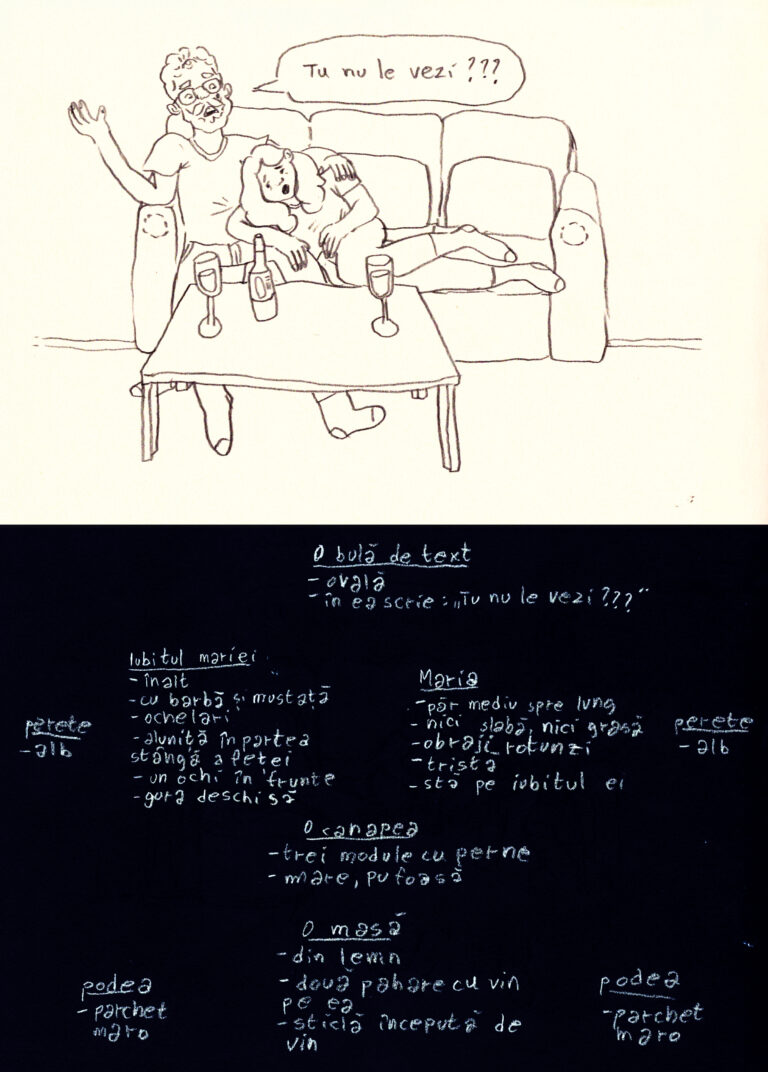 Tu nu le vezi ???
O bulă de text
- ovală
- în ea scrie : „Tu nu le vezi ???"
Iubitul mariei
- înalt
- cu barbă și mustață
- ochelari
- aluniță în partea
stângă a feței
- un ochi în frunte
- gura deschisă
Maria
- păr mediu spre lung
- nici slabă, nici grasă
- obraji rotunzi
- tristă
- stă pe iubitul ei
perete
- alb
perete
- alb
O canapea
- trei module cu perne
- mare, pufoasă
O masă
- din lemn
- două pahare cu vin
pe ea
- sticlă începută de
vin
podea
- parchet
maro
podea
- parchet
maro